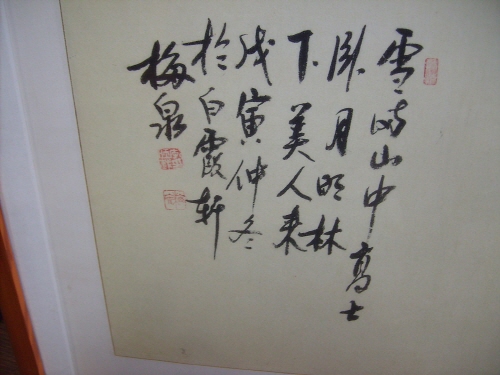 雪满山中高士
卧月明林
下美人来
戊寅仲冬
於白霞轩
梅泉